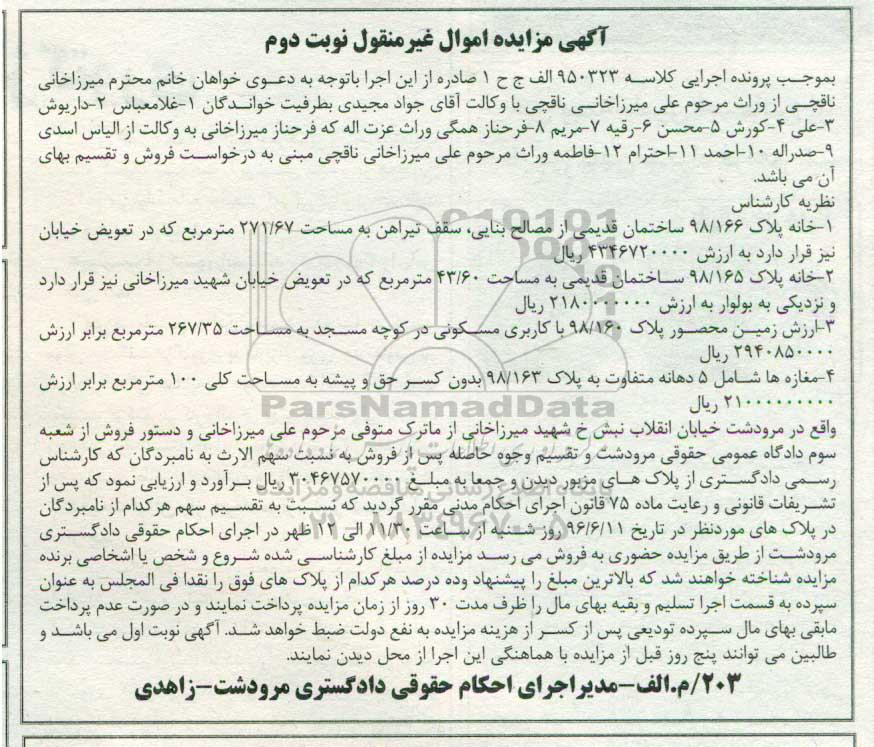 آگهی مزایده اموال غیرمنقول نوبت دوم
بموجب پرونده اجرایی کلاسه ۹۵۰۳۲۳ الف ج ح ۱ صادره از این اجرا باتوجه به دعوی خواهان خانم محترم میرزاخانی
ناقچی از وراث مرحوم علی میرزاخانی ناقچی با وکالت آقای جواد مجیدی بطرفیت خواندگان ۱-غلامعباس ۲-داریوش
۳-علی ۴-کورش ۵-محسن ۶-رقیه ۷-مریم ۸-فرحناز همگی وراث عزت اله که فرحناز میرزاخانی به وکالت از الیاس اسدی
۹-صدراله ۱۰-احمد ۱۱-احترام ۱۲-فاطمه وراث مرحوم علی میرزاخانی ناقچی مبنی به درخواست فروش و تقسیم بهای
آن می باشد.
نظریه کارشناس
۱-خانه پلاک ۹۸/۱۶۶ ساختمان قدیمی از مصالح بنایی، سقف تیراهن به مساحت ۲۷۱/۶۷ مترمربع که در تعویض خیابان
نیز قرار دارد به ارزش ۴۳۴۶۷۲۰۰۰۰ ریال
۲-خانه پلاک ۹۸/۱۶۵ ساختمان قدیمی به مساحت ۴۳/۶۰ مترمربع که در تعویض خیابان شهید میرزاخانی نیز قرار دارد
و نزدیکی به بولوار به ارزش ۲۱۸۰۰۰۰۰۰۰ ریال
۳-ارزش زمین محصور پلاک ۹۸/۱۶۰ با کاربری مسکونی در کوچه مسجد به مساحت ۲۶۷/۳۵ مترمربع برابر ارزش
۲۹۴۰۸۵۰۰۰۰ ریال
۴-مغازه ها شامل ۵ دهانه متفاوت به پلاک ۹۸/۱۶۳ بدون کسر حق و پیشه به مساحت کلی ۱۰۰ مترمربع برابر ارزش
۲۱۰۰۰۰۰۰۰۰۰ ریال
ParsNamadData
واقع در مرودشت خیابان انقلاب نبش خ شهید میرزاخانی از ماترک متوفی مرحوم علی میرزاخانی و دستور فروش از شعبه
سوم دادگاه عمومی حقوقی مرودشت و تقسیم وجوه حاصله پس از فروش به نسبت سهم الارث به نامبردگان که کارشناس
رسمی دادگستری از پلاک های مزبور دیدن و جمعا به مبلغ ۳۰۴۶۷۵۷۰۰۰۰ ریال برآورد و ارزیابی نمود که پس از
تشریفات قانونی و رعایت ماده ۷۵ قانون اجرای احکام مدنی مقرر گردید که نسبت به تقسیم سهم هرکدام از نامبردگان
در پلاک های موردنظر در تاریخ ۹۶/۶/۱۱ روز شنبه از ساعت ۱۱/۳۰ الی ۱۲ ظهر در اجرای احکام حقوقی دادگستری
مرودشت از طریق مزایده حضوری به فروش می رسد مزایده از مبلغ کارشناسی شده شروع و شخص یا اشخاصی برنده
مزایده شناخته خواهند شد که بالاترین مبلغ را پیشنهاد وده درصد هرکدام از پلاک های فوق را نقدا فی المجلس به عنوان
سپرده به قسمت اجرا تسلیم و بقیه بهای مال را ظرف مدت ۳۰ روز از زمان مزایده پرداخت نمایند و در صورت عدم پرداخت
مابقی بهای مال سپرده تودیعی پس از کسر از هزینه مزایده به نفع دولت ضبط خواهد شد. آگهی نوبت اول می باشد و
طالبین می توانند پنج روز قبل از مزایده با هماهنگی این اجرا از محل دیدن نمایند.
۲۰۳/م.الف-مدیراجرای احکام حقوقی دادگستری مرودشت-زاهدی